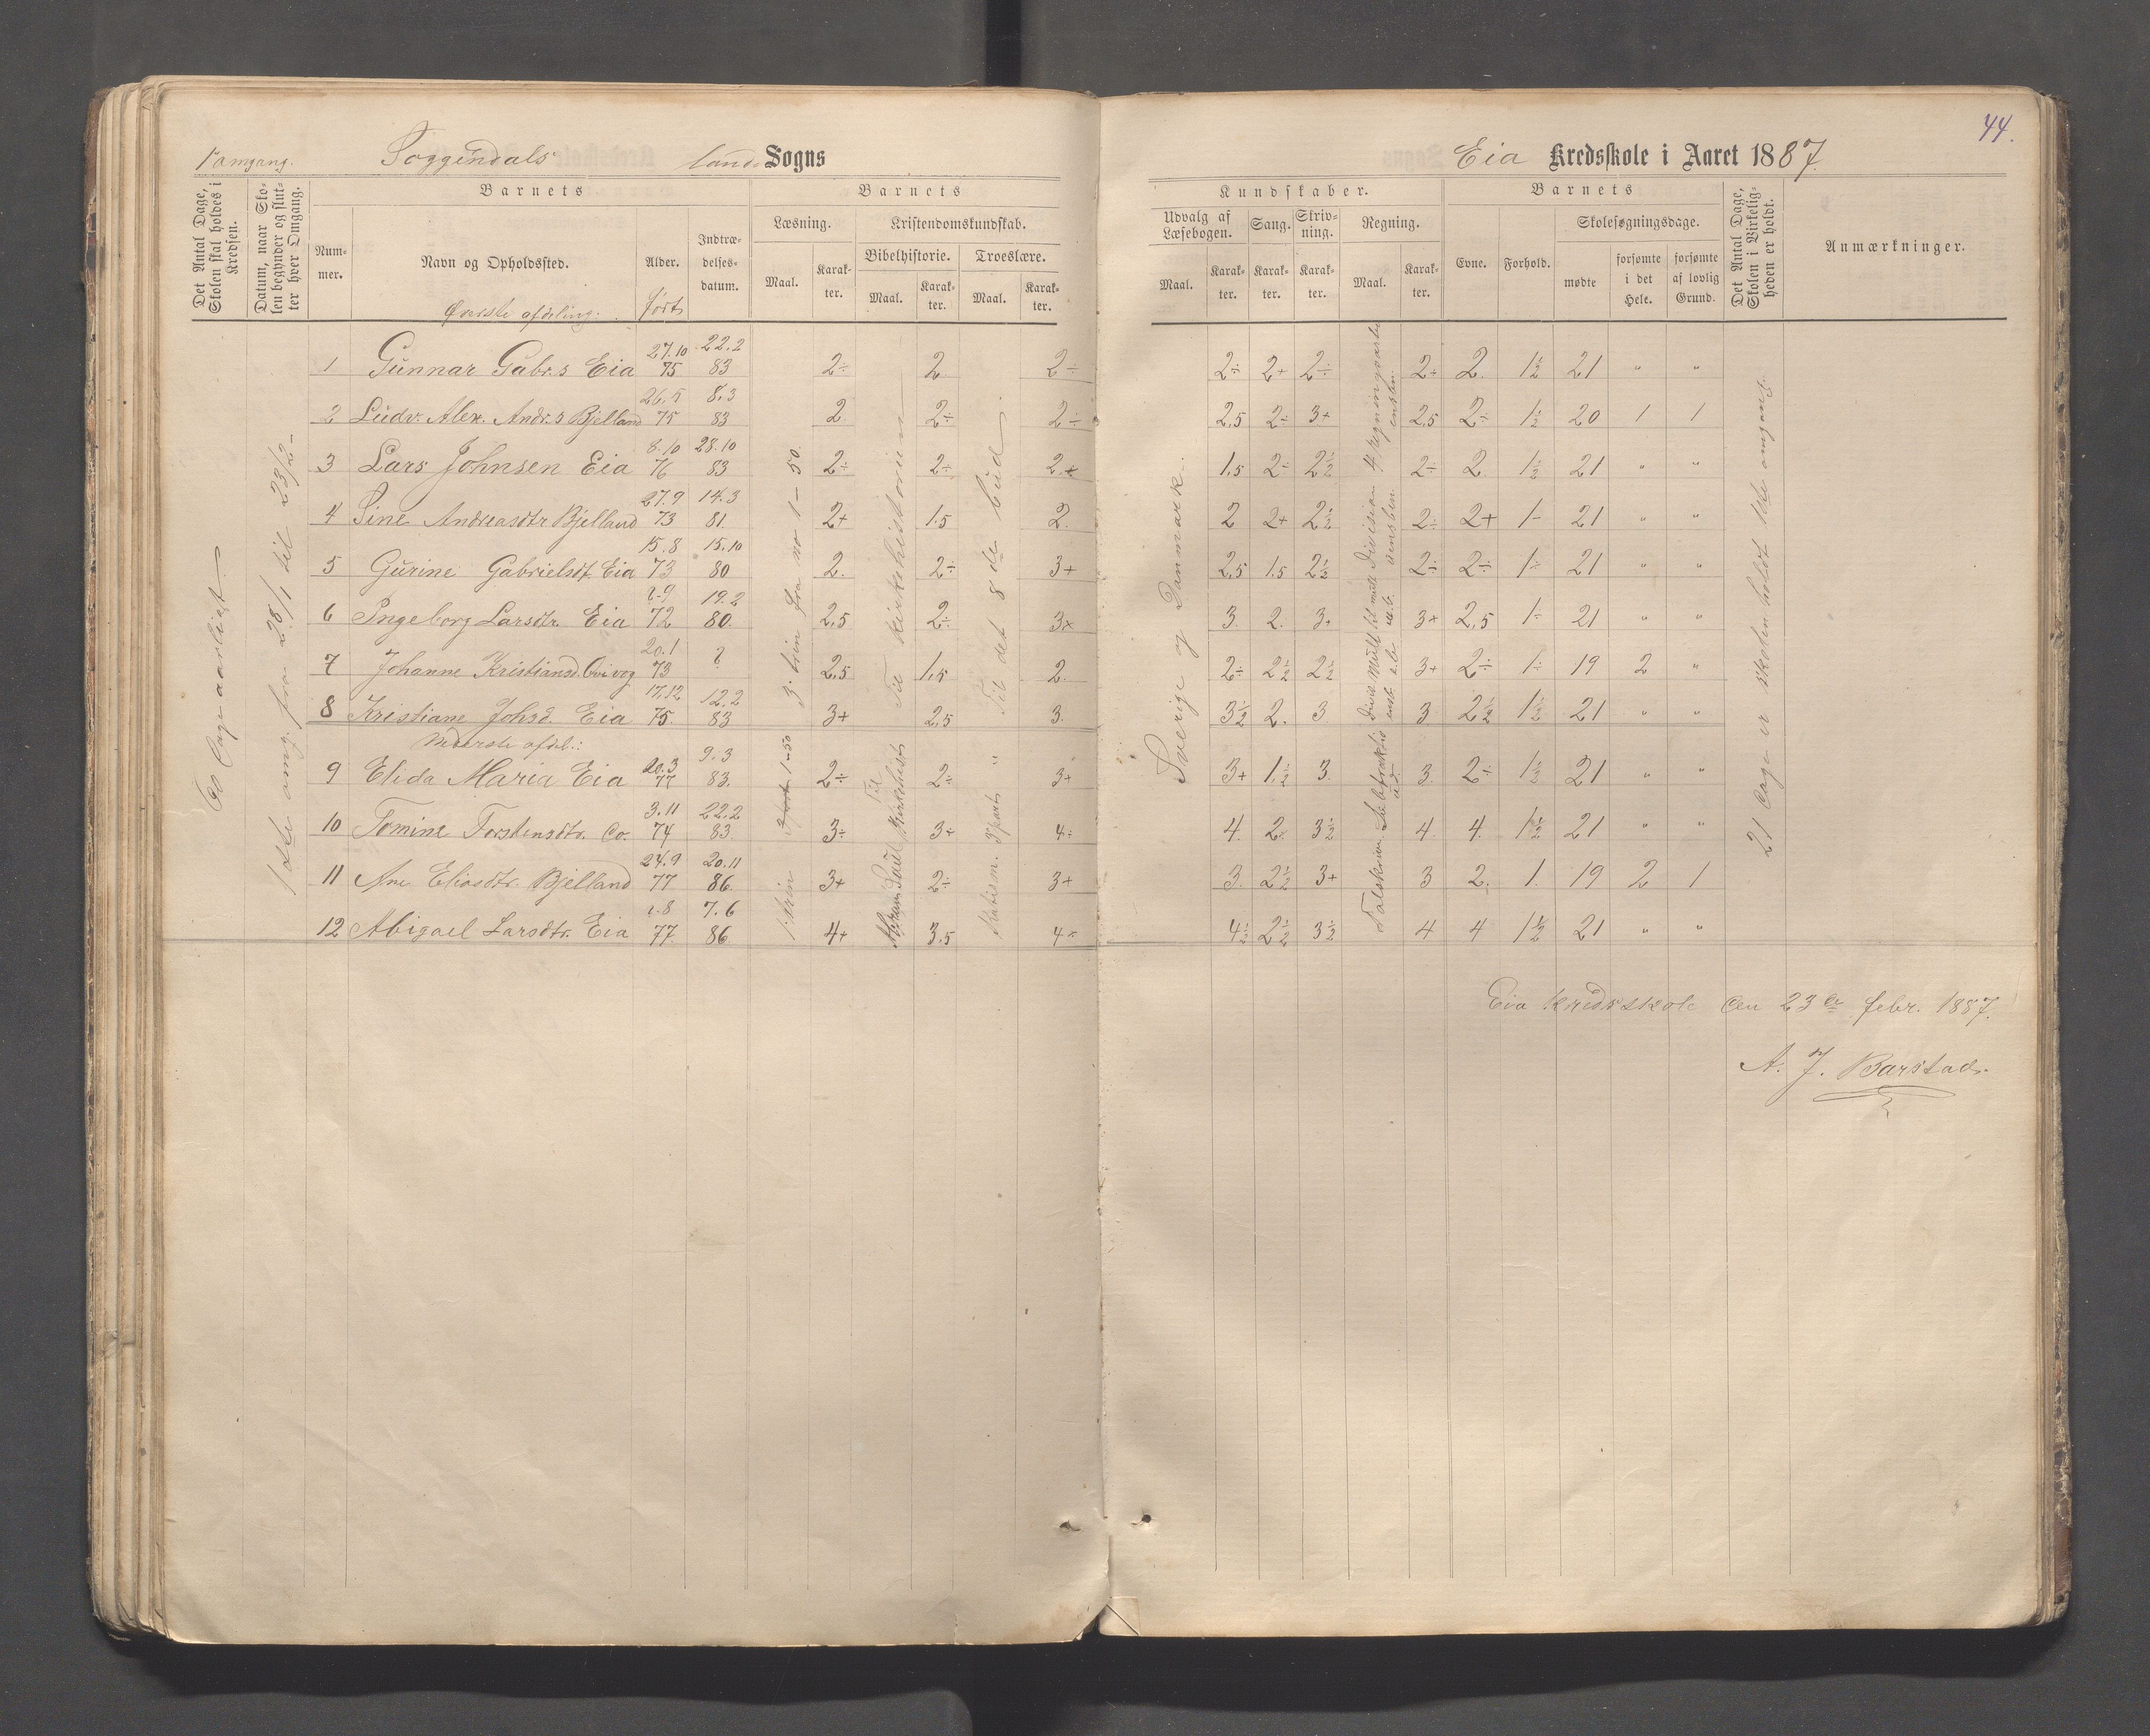 44.
1ste omgang. Soggendals land Sogns
Eia Kredsskole i Aaret 1887.
Det Antal Dage, Skolen skal holdes i Kredsen.
Datum, naar Skolen begynder og slutter hver Omgang.
Barnets
Nummer.
Navn og Opholdssted.
Øverste afdeling.
Alder.
født
Indtrædelsesdatum.
Barnets
Læsning.
Maal.
Karakter.
Kristendomskundskab.
Bibelhistorie.
Maal.
Karakter.
Troeslære.
Maal.
Karakter.
Kundskaber.
Udvalg af Læsebogen.
Maal.
Karakter.
Sang.
Karakter.
Skrivning.
Karakter.
Regning.
Maal.
Karakter.
Barnets
Evne.
Forhold.
Skolesøgningsdage.
mødte
forsømte i det Hele.
forsømte af lovlig Grund.
Det Antal Dage, Skolen i Virkeligheden er holdt.
Anmærkninger.
1 Gunnar Gabr.s Eia 27.10 75 22.2 83 2÷ 2 2÷ 2÷ 2+ 2÷ 2÷ 2. 1½ 21 " "
2 Ludv. Alex. Andr.s Bjelland 26.5 75 8.3 83 2. 2÷ 2÷ 2,5 2÷ 3+ 2,5 2÷ 1½ 20 1 1
3 Lars Johnsen Eia 8.10 76 28.10 83 2÷ 2÷ 2.+ 1,5 2÷ 2½ 2÷ 2. 1½ 21 " "
4 Sine Andreasdtr Bjelland 27.9 73 14.3 81. 2+ 1.5 2. 2 2+ 2½ 2÷ 2+ 1÷ 21 " "
5 Gurine Gabrielsdt. Eia 15.8 73 15.10 80 2. 2÷ 3+ 2,5 1.5 2½ 2÷ 2÷ 1÷ 21 " "
6 Ingeborg Larsdtr. Eia 72 19.2 80. 2,5 2÷ 3+ 3. 2. 3+ 3+ 2,5 1÷ 21 " "
7 Johanne Kristiansd. 20.1 73 ? 2,5 1,5 2. 2÷ 2½ 2½ 3+ 2÷ 1÷ 19 2 "
8 Kristiane Johsd. Eia 17.12 75. 12.2 83 3+ 2,5 3. 3½ 2. 3 3 2½ 1½ 21 " "
Nederste afdel.:
9 Elida Maria Eia 20.3 77 9.3 83. 2÷ 2÷ 3+ 3+ 1½ 3. 3. 2÷ 1½ 21 " "
10 Tomine Torstensdtr. do. 3.11 74 22.2 83. 3÷ 3÷ 4÷ 4. 2. 3½ 4. 4. 1½ 21 " "
11 Ane Eliasdtr. Bjelland 24.9 77 20.11 86. 3+ 2÷ 3+ 3. 2½ 3+ 3 2. 1. 19 2 1
12 Abigael Larsdtr. Eia 77. 7.6 86 4+ 3.5 4÷ 4½ 2½ 3½ 4 4 1½ 21 " "
60 dage aarligt
1ste omg. fra 28/1 til 23/2-
3. trin fra no 1-50.
Til kirkehistorien
Til det 8de bud
Sverige og Danmark.
21 dage er skolen holdt 1ste omgang.
Eia kredsskole den 23de febr. 1887.
A. J. Barstad.